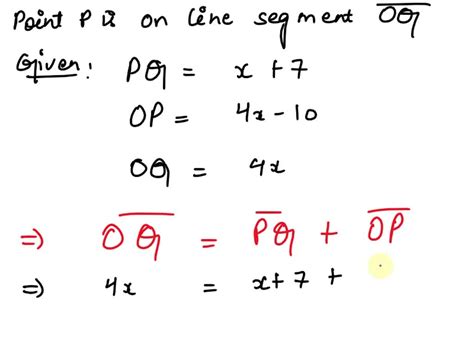 Point P is on line segment OQ
Given: PQ = x + 7
OP = 4x - 10
OQ = 4x
⇒ OQ = PQ + OP
⇒ 4x = x + 7 +